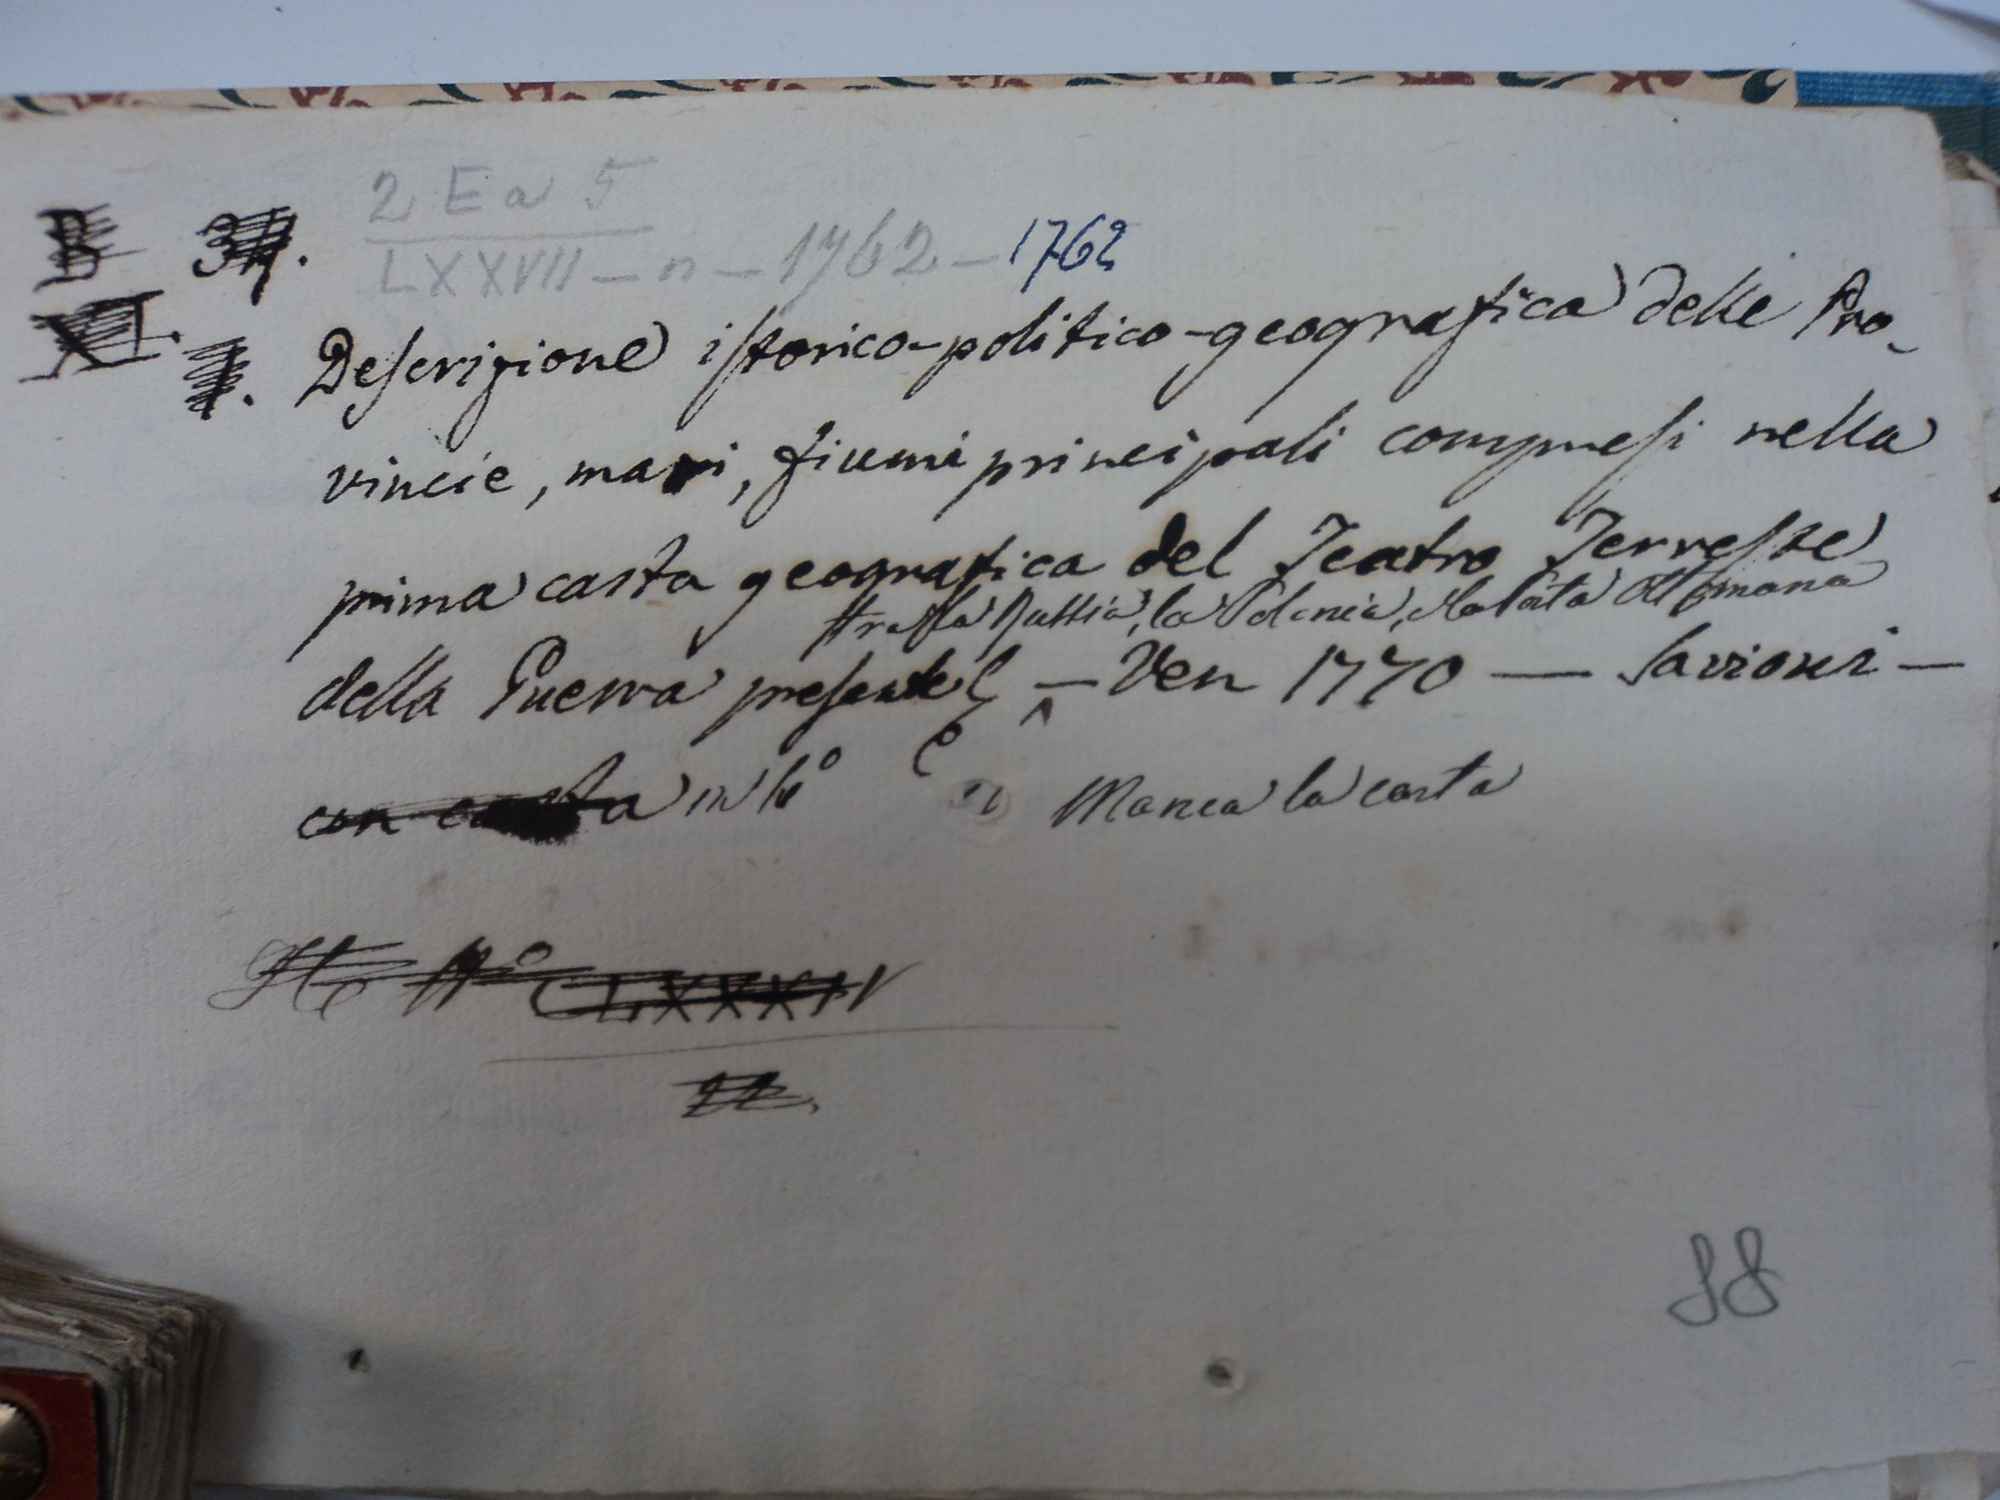 2 E a 5
LXXVII - n - 1762 - 1762
Descrizione istorico-politico-geografica delle Pro-
vincie, mari, fiumi principali compresi nella
prima carta geografica del Teatro Terrestre
tra la Russia, la Polonia, e la Porta Ottomana
della Guerra presente - Ven 1770 - Savioni -
con carta in 4º Manca la carta